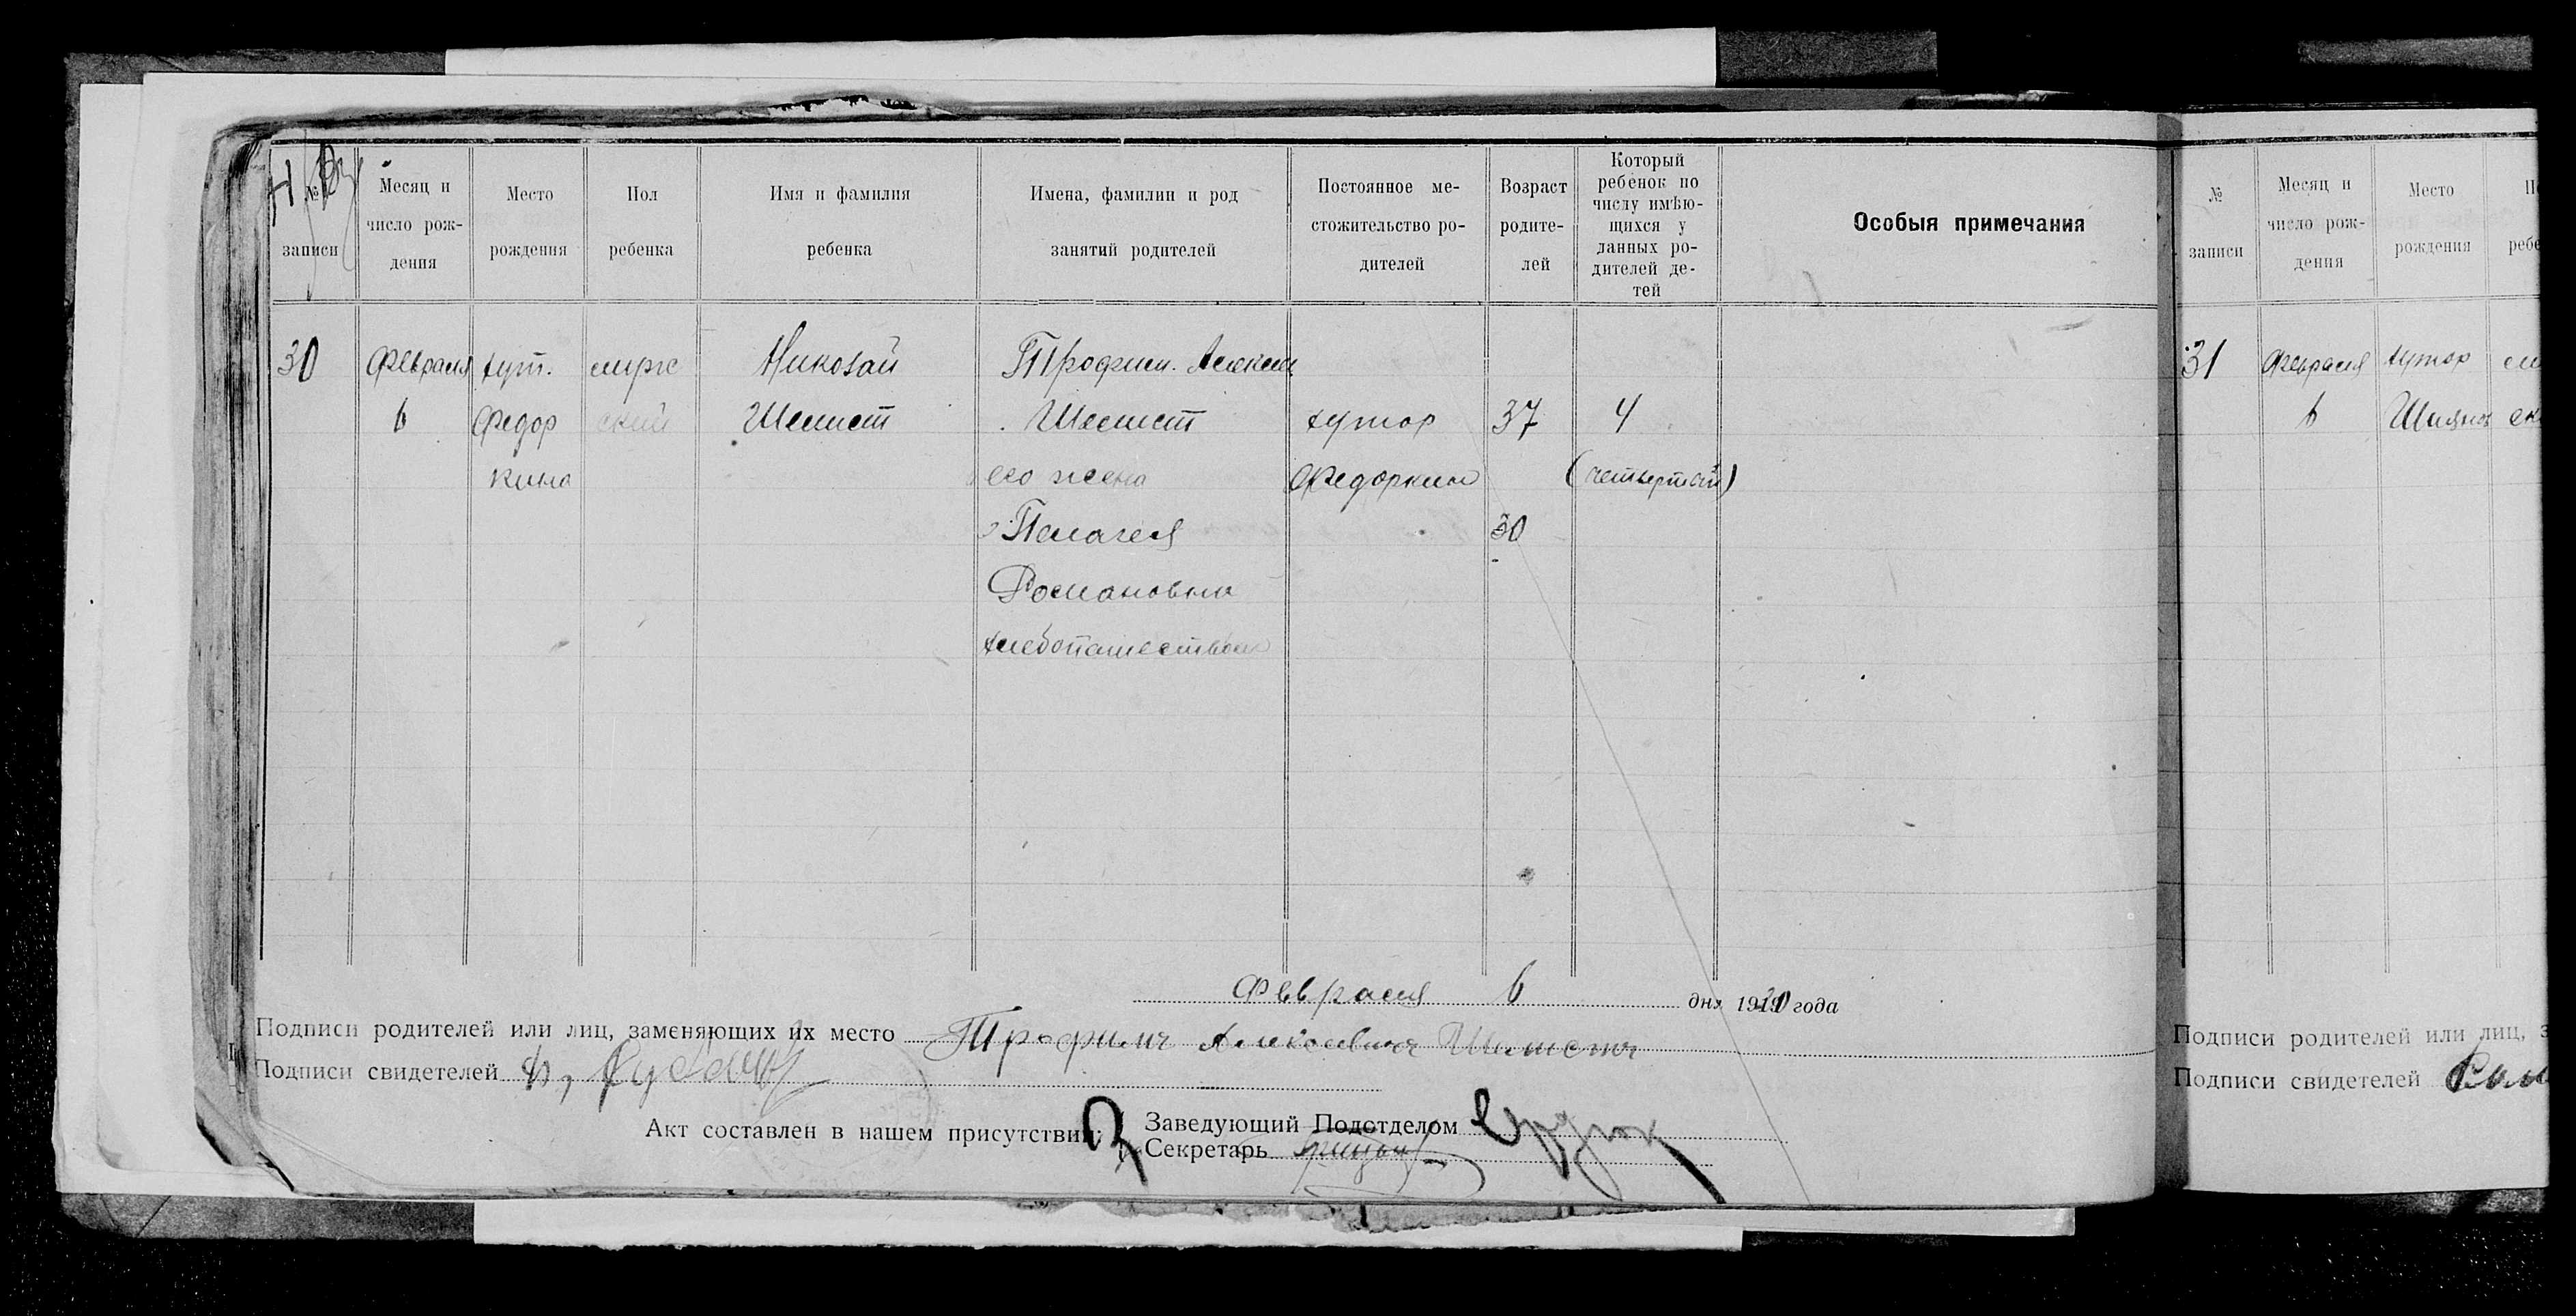 № записи | Месяц и число рождения | Место рождения | Пол ребенка | Имя и фамилия ребенка | Имена, фамилии и род занятий родителей | Постоянное местожительство родителей | Возраст родителей | Который ребенок по числу имѣющихся у данных родителей детей | Особыя примечания
30 | Февраля | хут. | мужс | Николай | Трофим. Алексеи
6 | Федор | ский | Шемет | Шемет | хутор | 37 | 4
кина | его жена | Федоркин | (четвертый)
Пелагея | 30
Романовна
хлебопашеством
Февраля 6 дня 1920 года
Подписи родителей или лиц, заменяющих их место Трофимъ Алексевичъ Шеметъ
Подписи свидетелей
Акт составлен в нашем присутствии:
Заведующий Подотделом
Секретарь
№ записи | Месяц и число рождения | Место рождения | По ребе
31 | Февраля | хутор
6 | Шиянов | ск
Подписи родителей или лиц, з
Подписи свидетелей